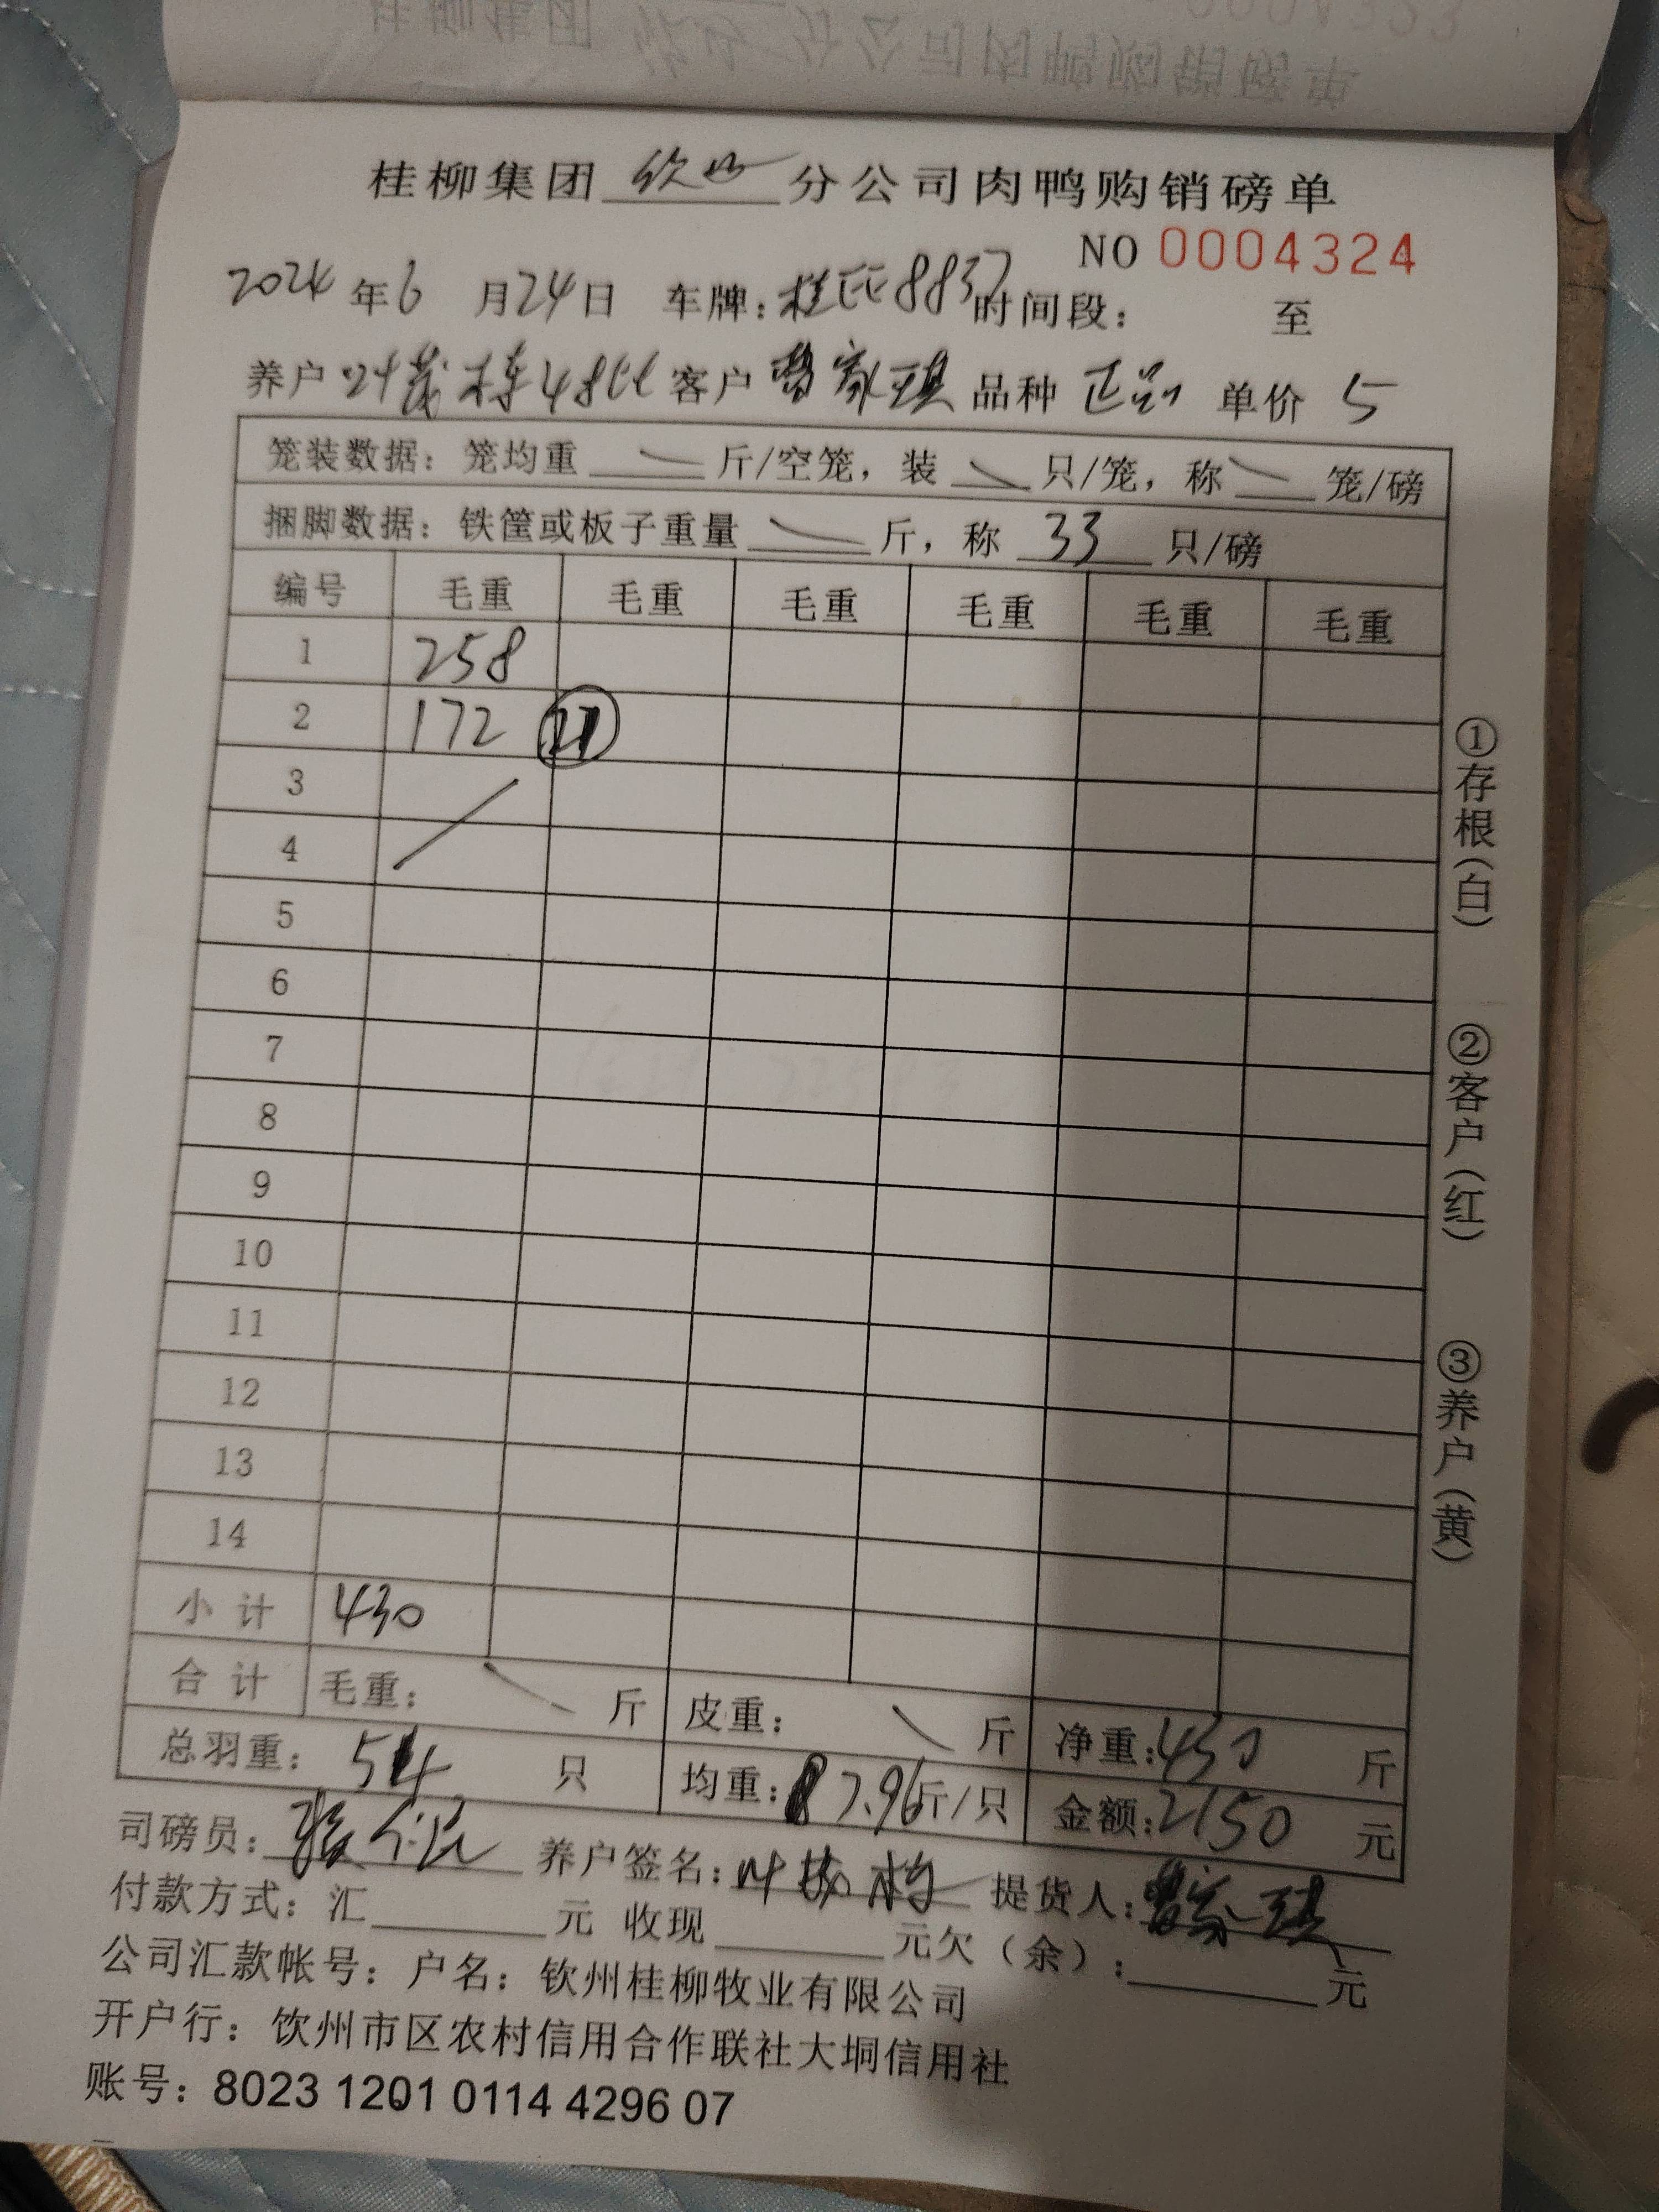 桂柳集团 分公司肉鸭购销磅单
NO 0004324
2024 年 6 月 24 日 车牌: 桂EE8837 时间段: 至
养户 叶茂栋 48 客户 曾家琪 品种 单价 5
笼装数据: 笼均重 斤/空笼, 装 只/笼, 称 笼/磅
捆脚数据: 铁筐或板子重量 斤, 称 33 只/磅
编号 毛重 毛重 毛重 毛重 毛重 毛重
1 258
2 172 21
3
4
5
6
7
8
9
10
11
12
13
14
小计 430
合计 毛重: 斤 皮重: 斤 净重: 430 斤
总羽重: 54 只 均重: 7.96 斤/只 金额: 2150 元
司磅员: 养户签名: 叶茂栋 提货人: 曾家琪
付款方式: 汇 元 收现 元欠(余): 元
公司汇款帐号: 户名: 钦州桂柳牧业有限公司
开户行: 饮州市区农村信用合作联社大垌信用社
账号: 8023 1201 0114 4296 07
①存根(白)
②客户(红)
③养户(黄)